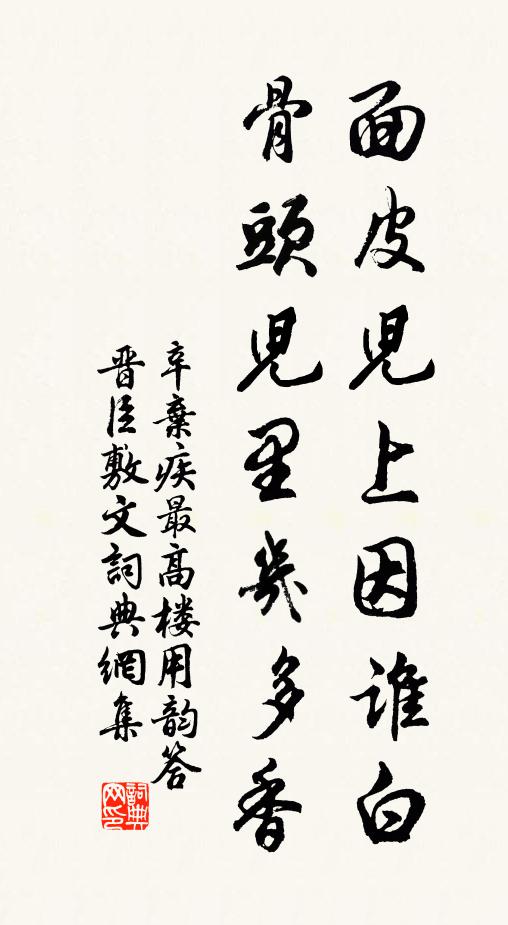 面皮兒上因誰白
骨頭兒里幾多香
辛棄疾最高楼用韵答
晋臣敷文詞典網集
詞典网印